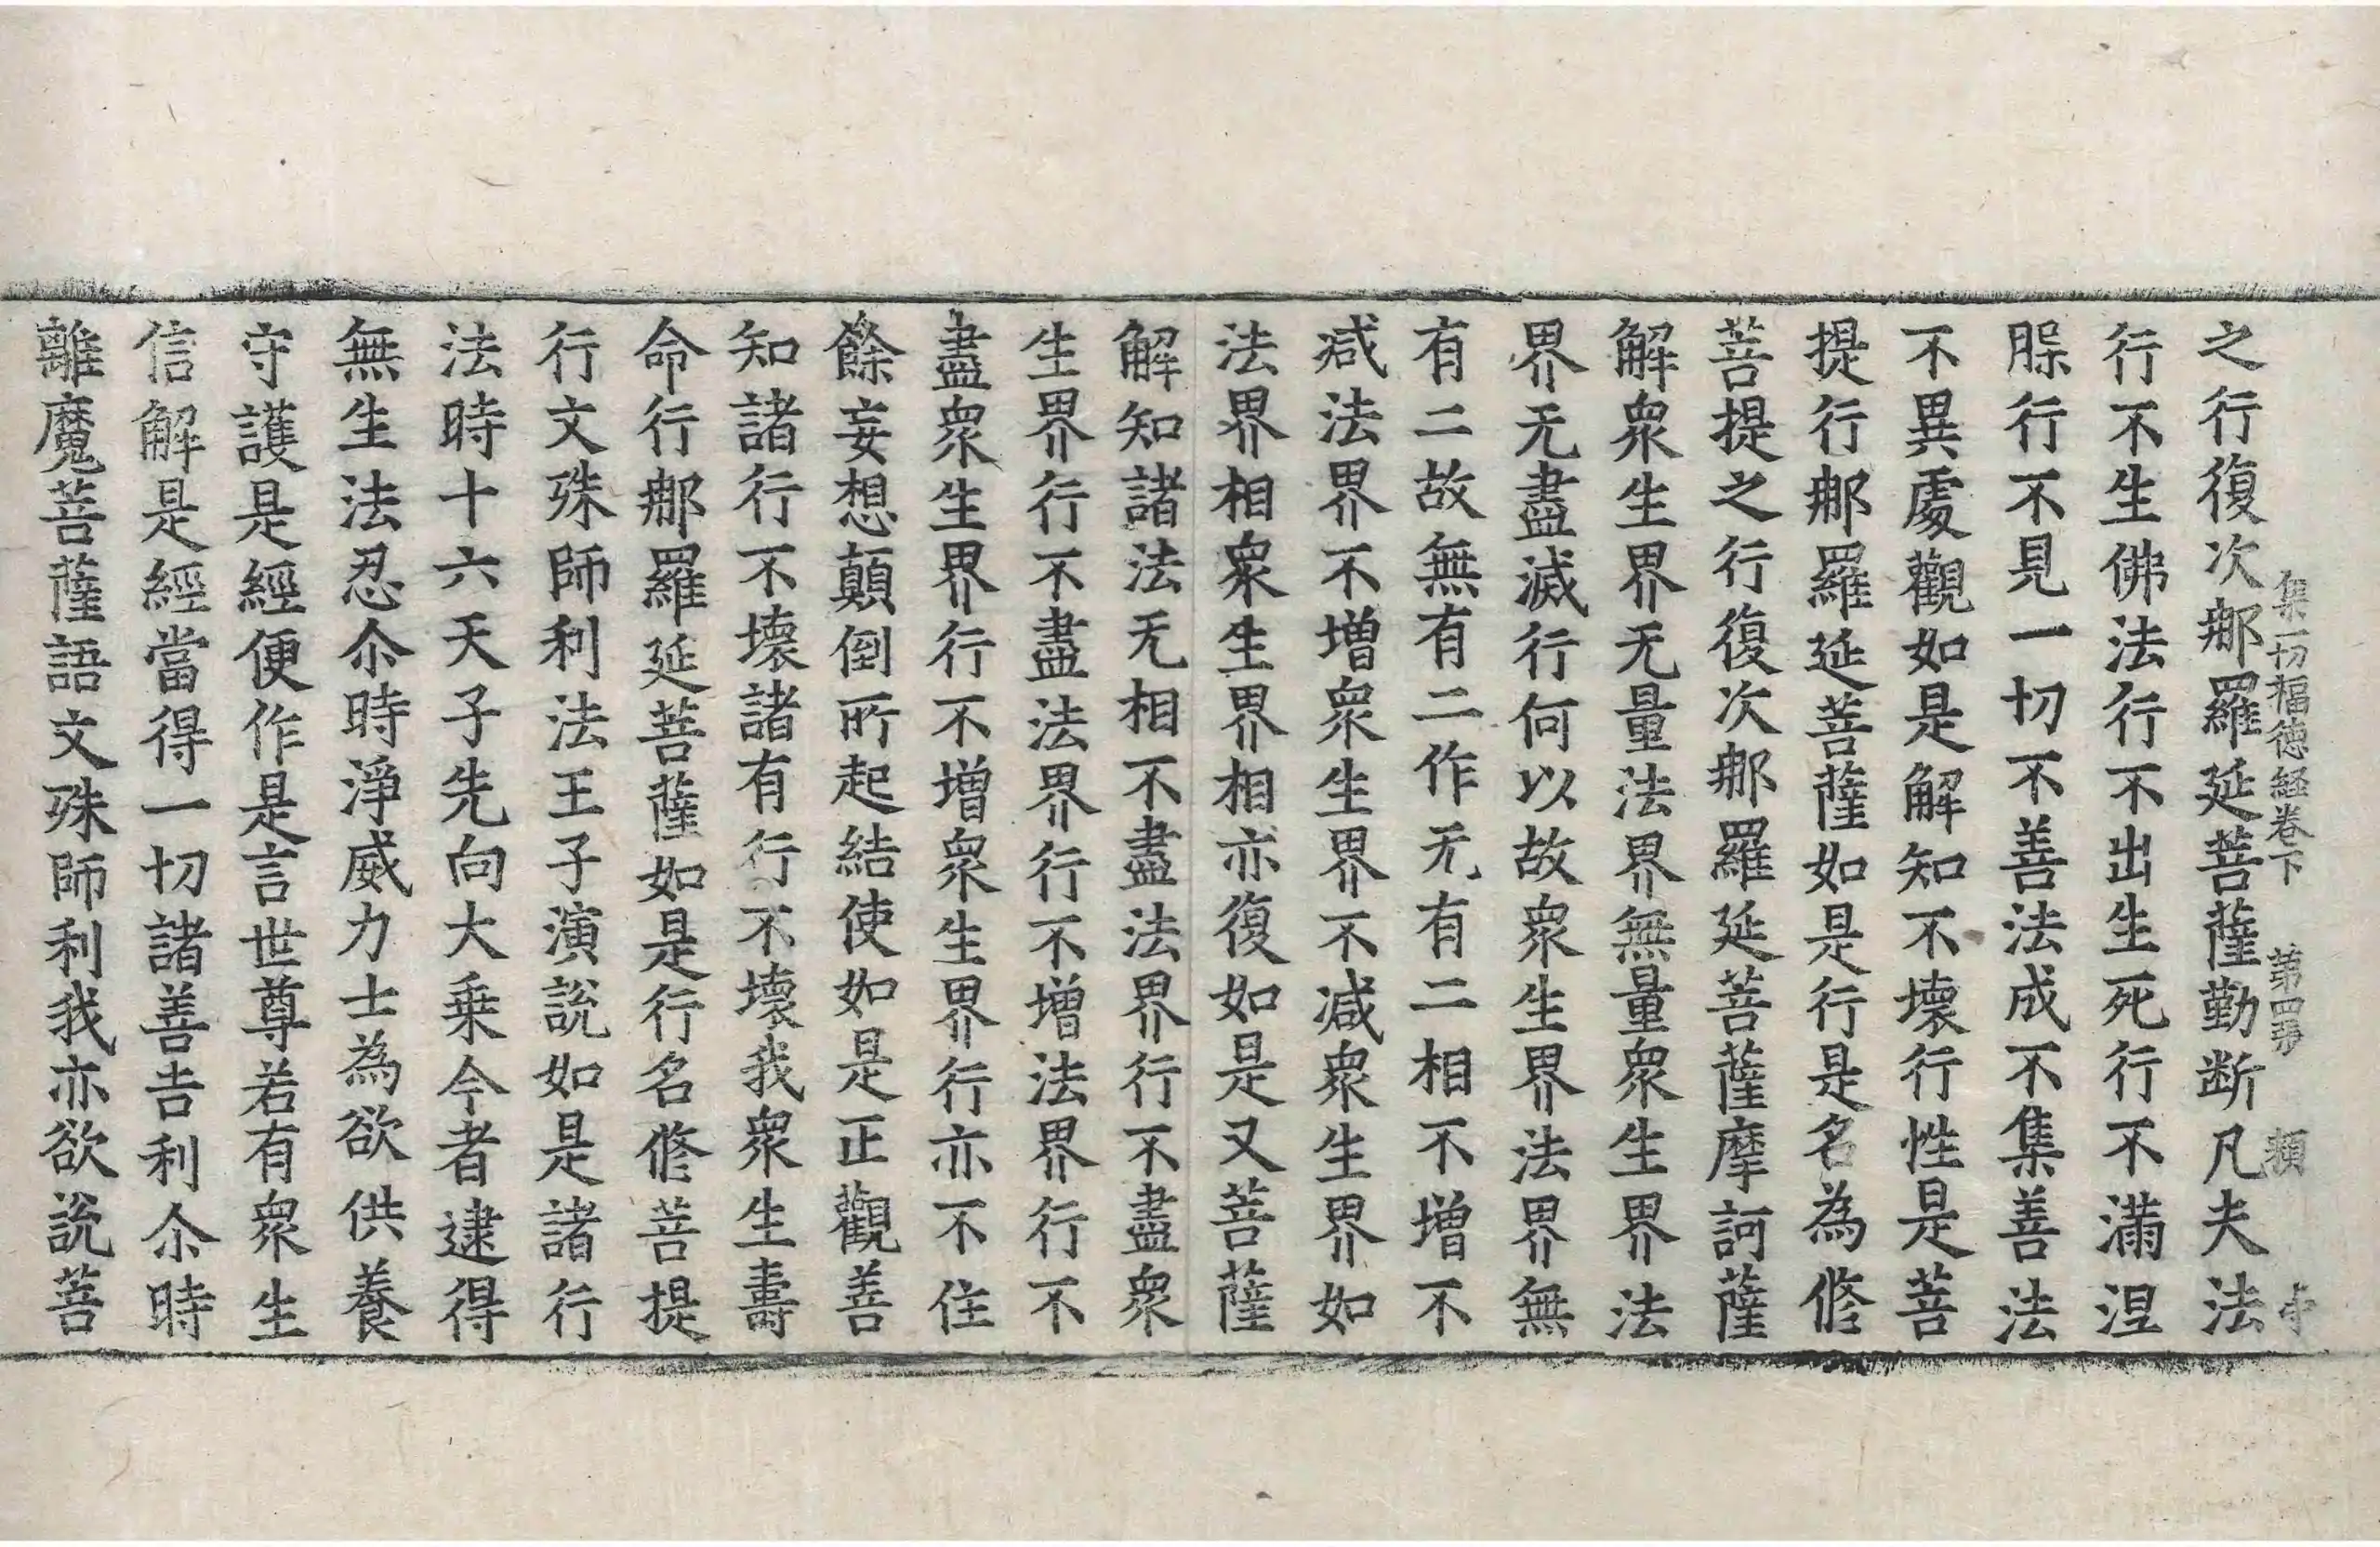 集一切福德経卷下 第四張 類
之行復次那羅延菩薩勤断凡夫法
行不生佛法行不出生死行不滿涅
脲行不見一切不善法成不集善法
不異處觀如是解知不壞行性是菩
提行那羅延菩薩如是行是名為修
菩提之行復次那羅延菩薩摩訶薩
解衆生界无量法界無量衆生界法
界无盡滅行何以故衆生界法界無
有二故無有二作无有二相不增不
减法界不增衆生界不减衆生界如
法界相衆生界相亦復如是又菩薩
解知諸法无相不盡法界行不盡衆
生界行不盡法界行不增法界行不
盡衆生界行不增衆生界行亦不住
餘妄想顛倒所起結使如是正觀善
知諸行不壞諸有行不壞我衆生壽
命行那羅延菩薩如是行名修菩提
行文殊師利法王子演說如是諸行
法時十六天子先向大乗今者逮得
無生法忍尒時淨威力士為欲供養
守護是經便作是言世尊若有衆生
信解是經當得一切諸善吉利尒時
離魔菩薩語文殊師利我亦欲說菩